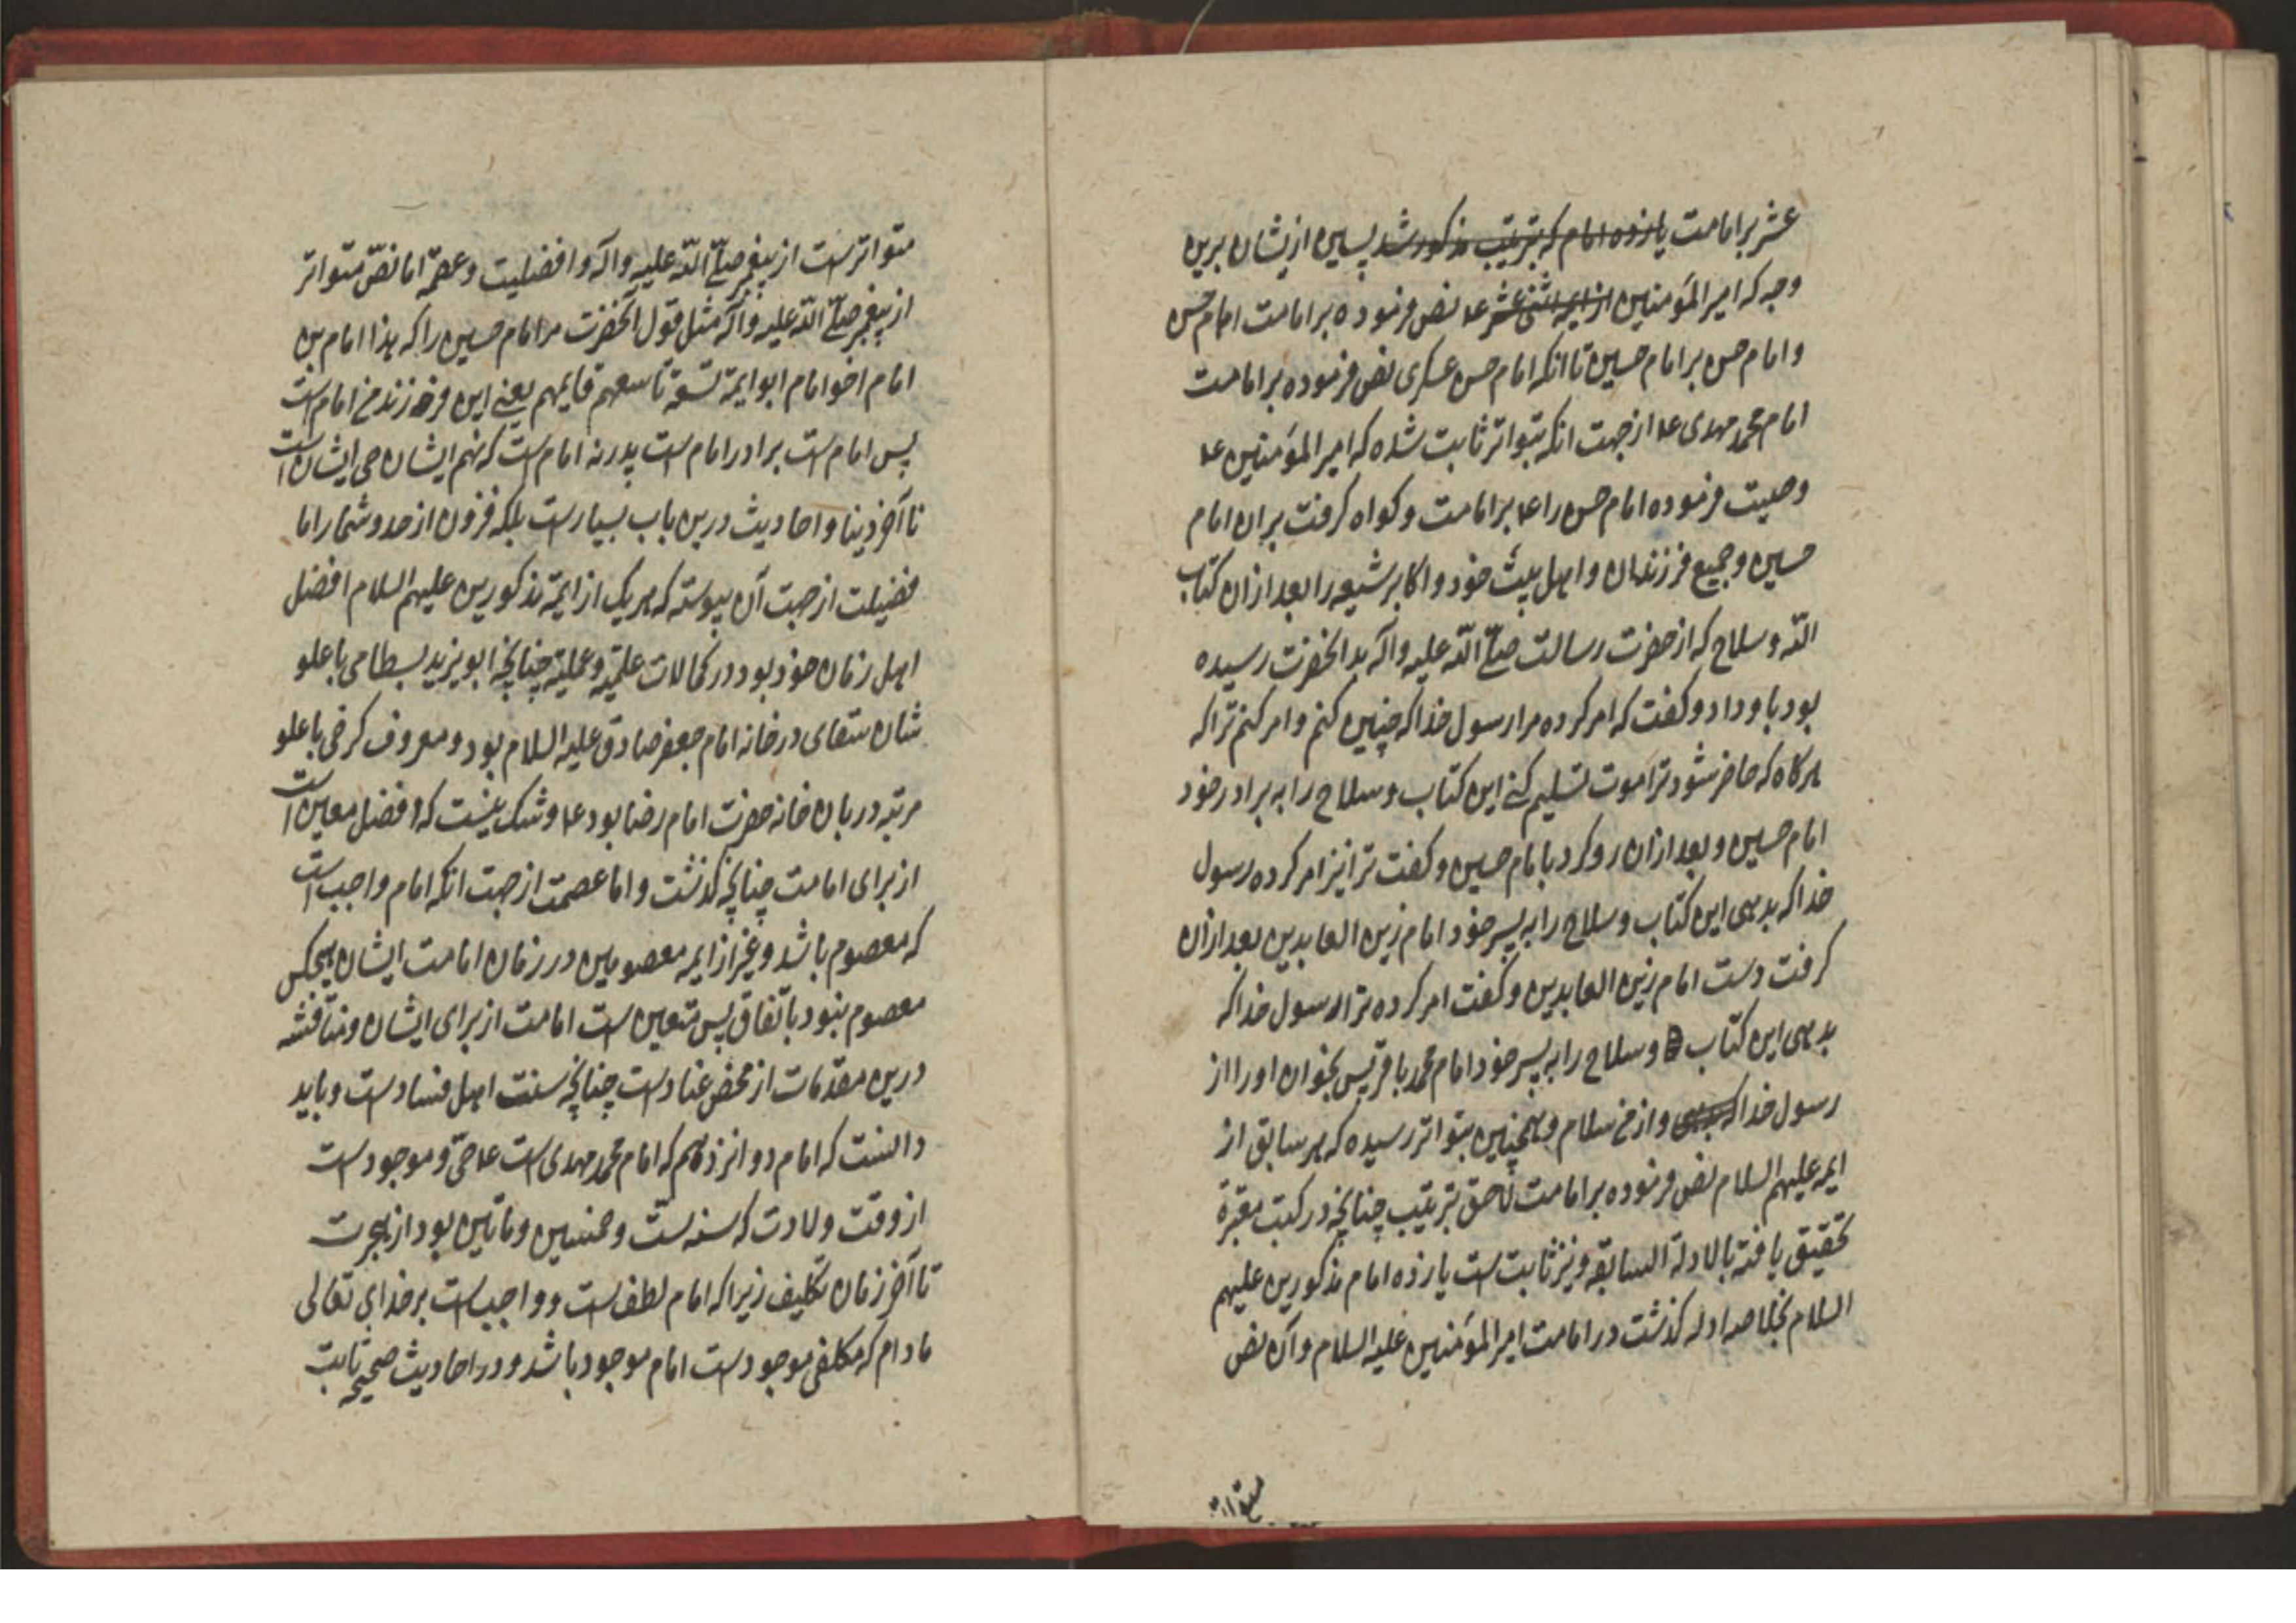 عشر بر امامت یازده امام که بترتیب مذکور شد پس این ازیشان برین
وجه که امیر المؤمنین از ایمه اثنی عشر ع۴ نص فرموده بر امامت امام حسن
و امام حسن بر امام حسین تا انکه امام حسن عسکری نص فرموده بر امامت
امام محمد مهدی ع۴ از جهت انکه بتواتر ثابت شده که امیر المؤمنین ع۴
وصیت فرموده امام حسن را ع۴ بر امامت و کواه کرفت بران امام
حسین و جمیع فرزندان و اهل بیت خود و اکابر شیعه را بعد ازان کتاب
الله و سلاح که از حضرت رسالت صلّی الله علیه وآله بدانحضرت رسیده
بود باو داد و کفت که امر کرده مرا رسول خدا که چنین کنم و امر کنم ترا که
هرکاه که حاضر شود ترا موت تسلیم کنی این کتاب و سلاح را به برادر خود
امام حسین و بعد ازان رو کرد بامام حسین و کفت ترا نیز امر کرده رسول
خدا که بدهی این کتاب و سلاح را به پسر خود امام زین العابدین بعد ازان
کرفت دست امام زین العابدین و کفت امر کرده ترا رسول خدا که
بدهی این کتاب و سلاح را به پسر خود امام محمد باقر پس بخوان او را از
رسول خدا که بدهی و از من سلام و همچنین بتواتر رسیده که هر سابق از
ایمه علیهم السلام نص فرموده بر امامت لاحق بترتیب چنانچه در کتب معتبرة
تحقیق یافته بالادلة السابقه و نیز ثابت است یازده امام مذکورین علیهم
السلام بخلاصه ادله کذشت در امامت امیر المؤمنین علیه السلام و آن نص
متواتر
متواتر است از پیغمبر صلّی الله علیه وآله و افضلیت و عصمة اما نصّ متواتر
از پیغمبر صلّی الله علیه وآله مثل قول آنحضرت مر امام حسین را که هذا امام بن
امام اخو امام ابو ایمة تسعة تاسعهم قایمهم یعنی این فرزند من امام است
پس امام است برادر امام است پدر نه امام است که نهم ایشان حی ایشان است
تا آخر دنیا و احادیث درین باب بسیار است بلکه فزون از حد و شمار اما
فضیلت از جهت آن پیوسته که هر یک از ایمّة مذکورین علیهم السلام افضل
اهل زمان خود بود در کمالات علمیّه و عملیّة چنانچه ابو یزید بسطامی با علو
شان سقای در خانه امام جعفر صادق علیه السلام بود و معروف کرخی با علو
مرتبه دربان خانه حضرت امام رضا بود ع۴ و شک نیست که افضل معین است
از برای امامت چنانچه کذشت و اما عصمت از جهت انکه امام واجب است
که معصوم باشد و غیر از ایمه معصومین در زمان امامت ایشان هیچکس
معصوم نبود باتفاق پس متعین است امامت از برای ایشان و مناقشه
درین مقدمات از محض عناد است چنانچه سنت اهل فساد است و باید
دانست که امام دوانزدهم که امام محمد مهدی است ع۴ حیّ و موجود است
از وقت ولادت که سنه ستّ و خمسین و ماتین بود از هجرت
تا آخر زمان تکلیف زیرا که امام لطف است و واجب است بر خدای تعالی
مادام که مکلفی موجود است امام موجود باشد و در احادیث صحیحه ثابت